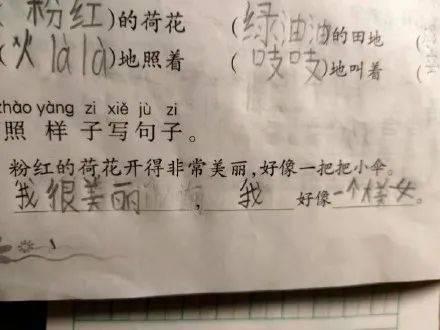 (粉红)的荷花 (绿油油的田地 (
(火làlà)地照着 (吱吱)地叫着 (
zhào yàng zi xiě jù zi
照样子写句子。
粉红的荷花开得非常美丽,好像一把把小伞。
我很美丽,我好像一个大美女。